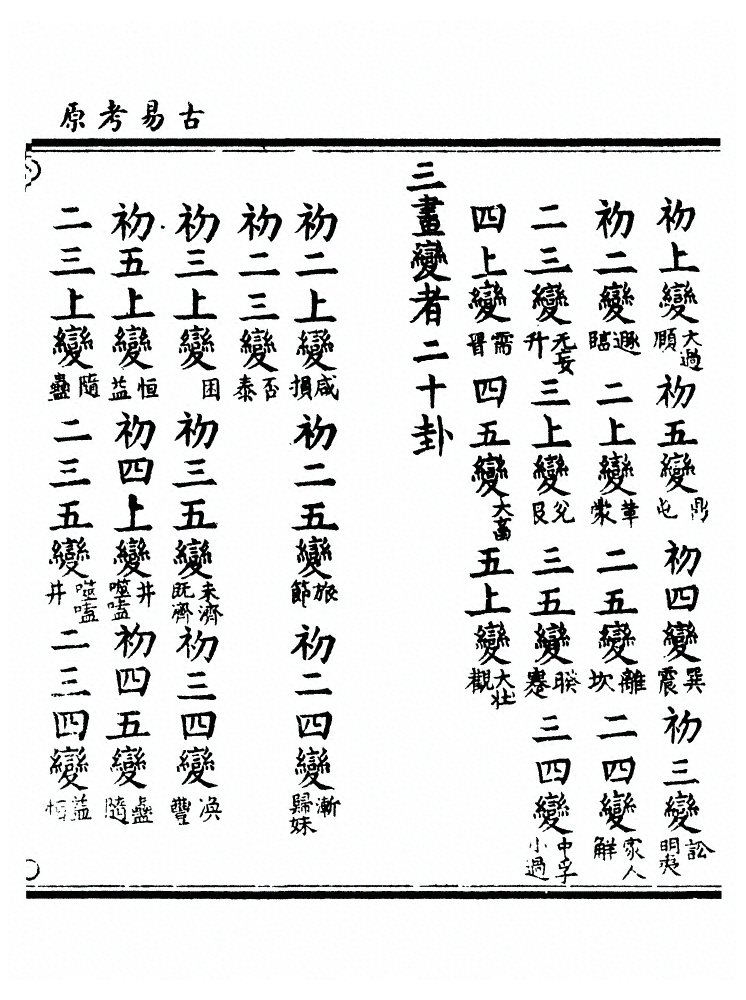 古易考原
初上變大過頤初五變鼎屯初四變巽震初三變訟明夷
初二變遯臨二上變革蒙二五變離坎二四變家人解
二三變无妄升三上變兌艮三五變睽蹇三四變中孚小過
四上變需晋四五變大畜五上變大壯觀
三畫變者二十卦
初二上變咸損初二五變旅節初二四變漸歸妹
初二三變否泰
初三上變困初三五變未濟既濟初三四變渙豐
初五上變恒益初四上變井噬嗑初四五變蠱隨
二三上變隨蠱二三五變噬嗑井二三四變益恒